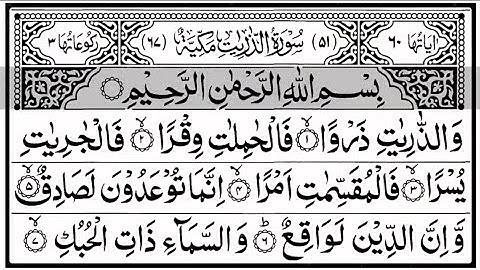 اٰیَاتُهَا ۶۰ (۵۱) سُوْرَةُ الذّٰرِیٰتِ مَكِّیَّةٌ (۶۷) رُكُوْعَاتُهَا ۳
بِسْمِ اللّٰهِ الرَّحْمٰنِ الرَّحِیْمِ
وَالذّٰرِیٰتِ ذَرْوًا ۙ﴿۱﴾ فَالْحٰمِلٰتِ وِقْرًا ۙ﴿۲﴾ فَالْجٰرِیٰتِ
یُسْرًا ۙ﴿۳﴾ فَالْمُقَسِّمٰتِ اَمْرًا ۙ﴿۴﴾ اِنَّمَا تُوْعَدُوْنَ لَصَادِقٌ ۙ﴿۵﴾
وَّاِنَّ الدِّیْنَ لَوَاقِعٌ ؕ﴿۶﴾ وَالسَّمَآءِ ذَاتِ الْحُبُكِ ۙ﴿۷﴾